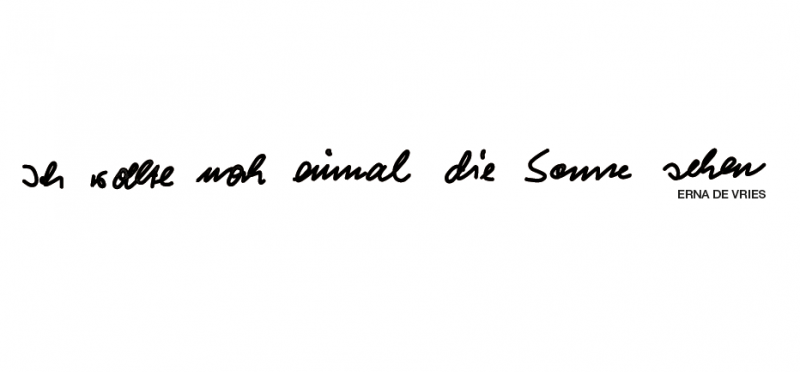 Ich wollte noch einmal die Sonne sehen
ERNA DE VRIES